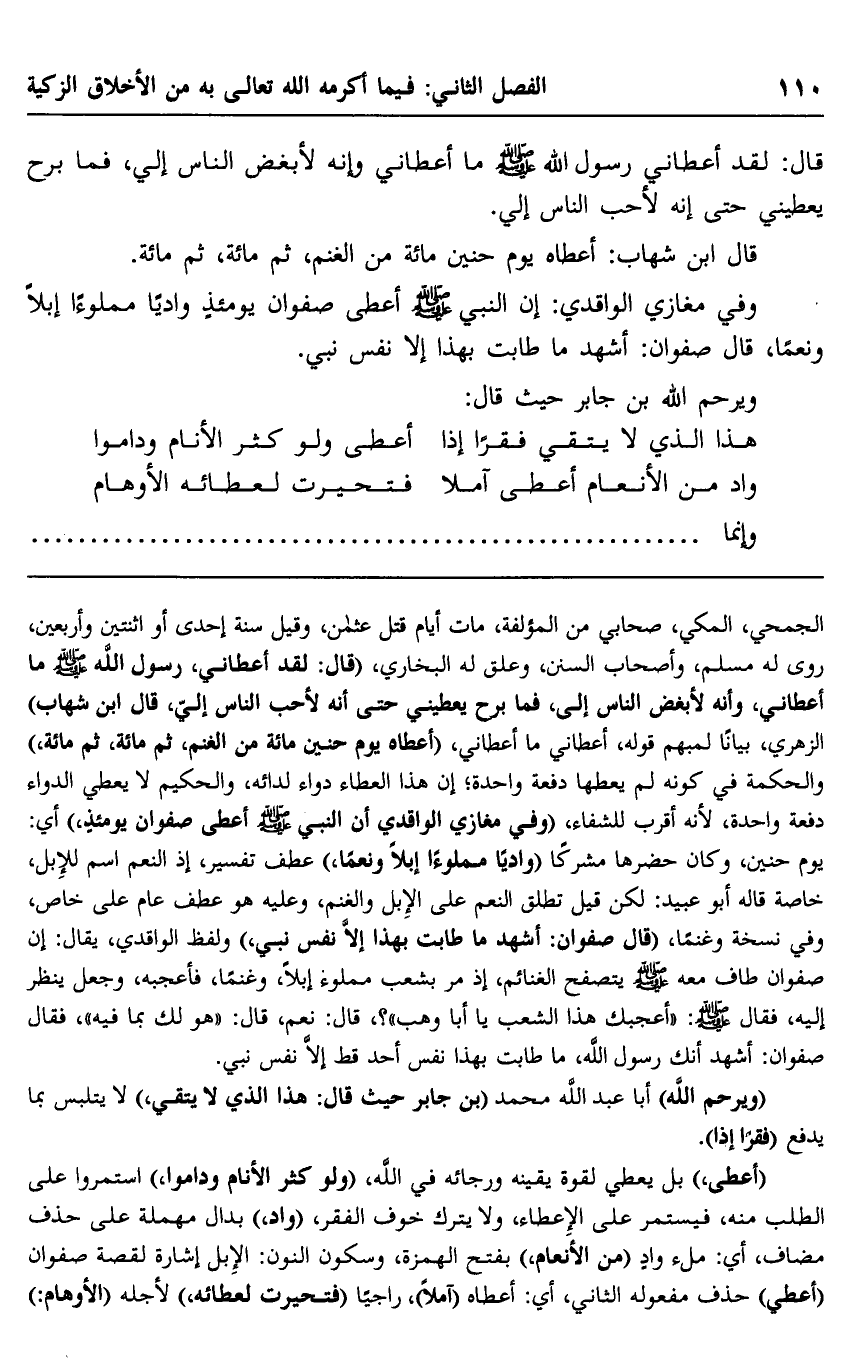 ١١٠ الفصل الثاني: فيما أكرمه الله تعالى به من الأخلاق الزكية
قال: لقد أعطاني رسول الله ﷺ ما أعطاني وإنه لأبغض الناس إلي، فما برح
يعطيني حتى إنه لأحب الناس إلي.
قال ابن شهاب: أعطاه يوم حنين مائة من الغنم، ثم مائة، ثم مائة.
وفي مغازي الواقدي: إن النبي ﷺ أعطى صفوان يومئذٍ واديًا مملوءًا إبلاً
ونعمًا، قال صفوان: أشهد ما طابت بهذا إلا نفس نبي.
ويرحم الله بن جابر حيث قال:
هذا الذي لا يتقي فقرًا إذا أعطى ولو كثر الأنام وداموا
واد من الأنعام أعطى آملا فتحيرت لعطائه الأوهام
وإنما ........................................................
الجمحي، المكي، صحابي من المؤلفة، مات أيام قتل عثمٰن، وقيل سنة إحدى أو اثنتين وأربعين،
روى له مسلم، وأصحاب السنن، وعلق له البخاري، (قال: لقد أعطاني، رسول اللَّه ﷺ ما
أعطاني، وأنه لأبغض الناس إلى، فما برح يعطيني حتى أنه لأحب الناس إليّ، قال ابن شهاب)
الزهري، بيانًا لمبهم قوله، أعطاني ما أعطاني، (أعطاه يوم حنين مائة من الغنم، ثم مائة، ثم مائة،)
والحكمة في كونه لم يعطها دفعة واحدة؛ إن هذا العطاء دواء لدائه، والحكيم لا يعطي الدواء
دفعة واحدة، لأنه أقرب للشفاء، (وفي مغازي الواقدي أن النبي ﷺ أعطى صفوان يومئذٍ،) أي:
يوم حنين، وكان حضرها مشركًا (واديًا مملوءًا إبلاً ونعمًا،) عطف تفسير، إذ النعم اسم للإِبل،
خاصة قاله أبو عبيد: لكن قيل تطلق النعم على الإبل والغنم، وعليه هو عطف عام على خاص،
وفي نسخة وغنمًا، (قال صفوان: أشهد ما طابت بهذا إلاَّ نفس نبي،) ولفظ الواقدي، يقال: إن
صفوان طاف معه ﷺ يتصفح الغنائم، إذ مر بشعب مملوءٍ إبلاً، وغنمًا، فأعجبه، وجعل ينظر
إليه، فقال ﷺ: «أعجبك هذا الشعب يا أبا وهب»؟، قال: نعم، قال: «هو لك بما فيه»، فقال
صفوان: أشهد أنك رسول اللَّه، ما طابت بهذا نفس أحد قط إلاَّ نفس نبي.
(ويرحم اللَّه) أبا عبد اللَّه محمد (بن جابر حيث قال: هذا الذي لا يتقي،) لا يتلبس بما
يدفع (فقرًا إذا).
(أعطى،) بل يعطي لقوة يقينه ورجائه في اللَّه، (ولو كثر الأنام وداموا،) استمروا على
الطلب منه، فيستمر على الإِعطاء، ولا يترك خوف الفقر، (واد،) بدال مهملة على حذف
مضاف، أي: ملء وادٍ (من الأنعام،) بفتح الهمزة، وسكون النون: الإبل إشارة لقصة صفوان
(أعطي) حذف مفعوله الثاني، أي: أعطاه (آملاً)، راجيًا (فتحيرت لعطائه،) لأجله (الأوهام:)